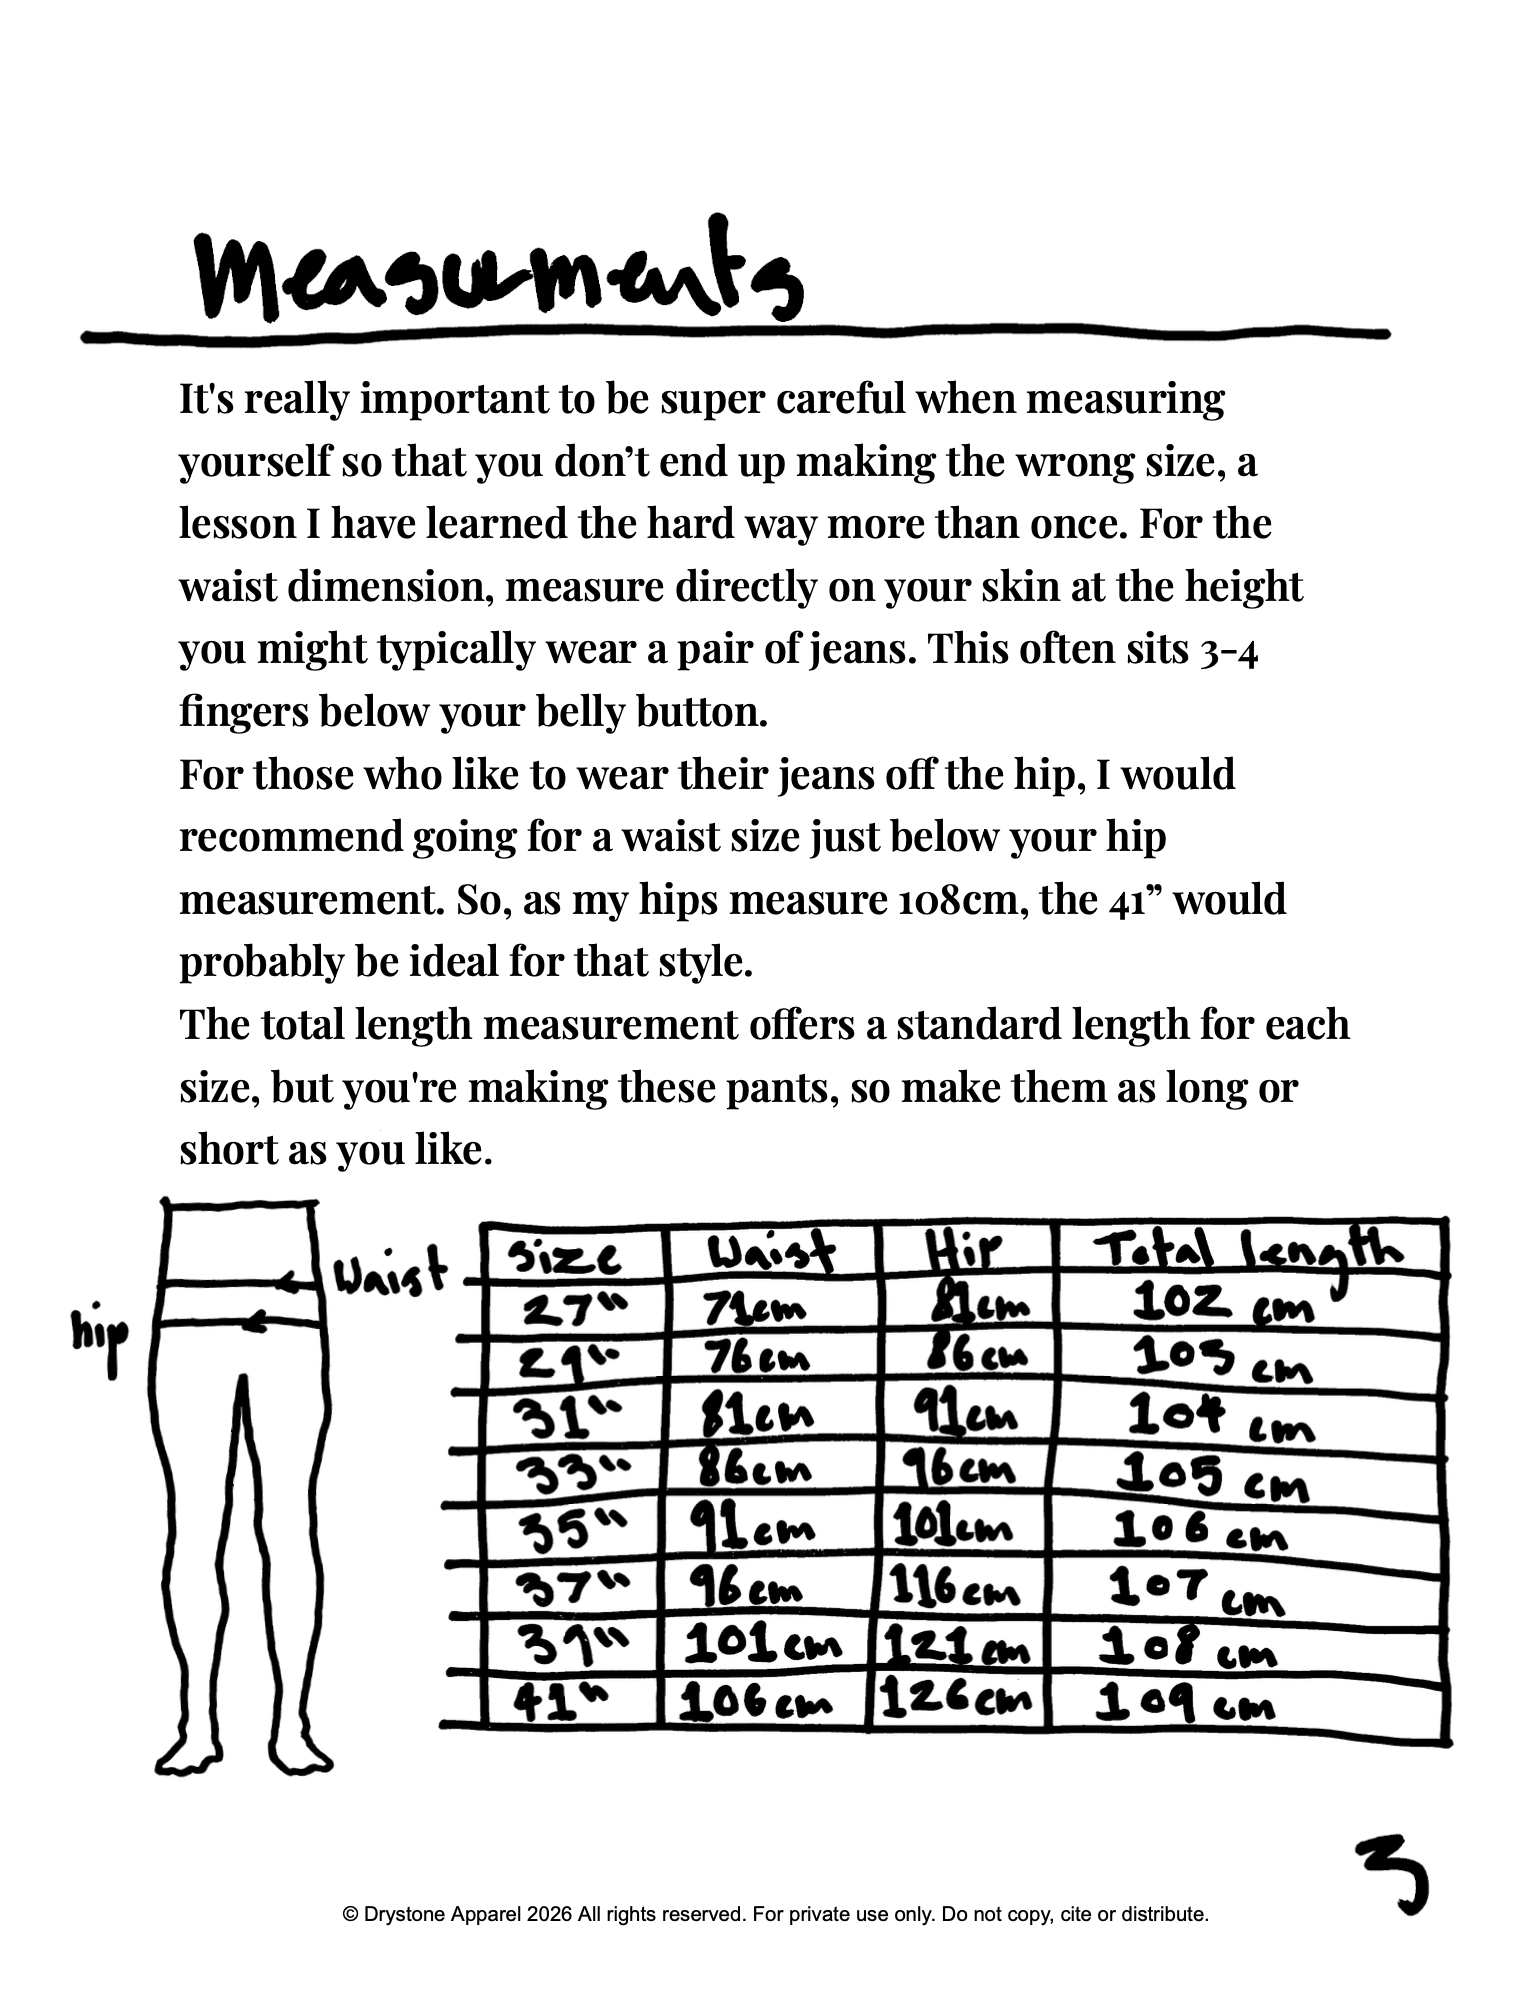 Measurements
It's really important to be super careful when measuring
yourself so that you don’t end up making the wrong size, a
lesson I have learned the hard way more than once. For the
waist dimension, measure directly on your skin at the height
you might typically wear a pair of jeans. This often sits 3-4
fingers below your belly button.
For those who like to wear their jeans off the hip, I would
recommend going for a waist size just below your hip
measurement. So, as my hips measure 108cm, the 41” would
probably be ideal for that style.
The total length measurement offers a standard length for each
size, but you're making these pants, so make them as long or
short as you like.
Waist
hip
Size Waist Hip Total length
27" 71cm 81cm 102 cm
29" 76cm 86cm 103 cm
31" 81cm 91cm 104 cm
33" 86cm 96cm 105 cm
35" 91cm 101cm 106 cm
37" 96cm 116cm 107 cm
39" 101cm 121cm 108 cm
41" 106cm 126cm 109 cm
3
© Drystone Apparel 2026 All rights reserved. For private use only. Do not copy, cite or distribute.